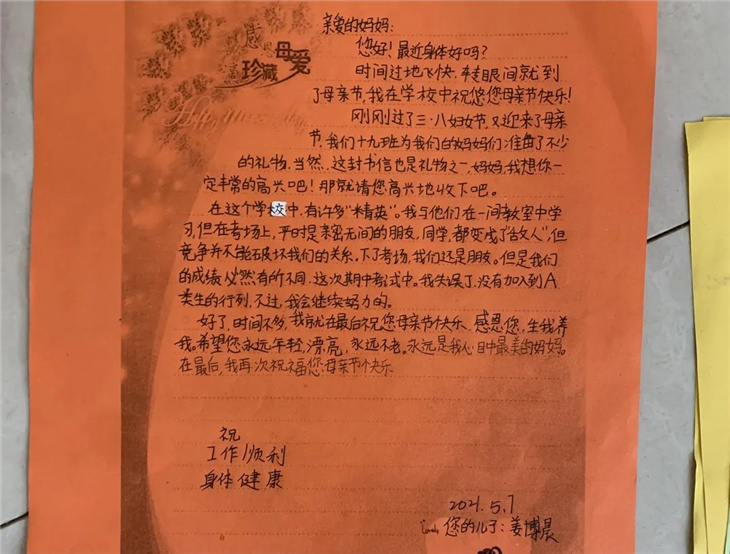 珍藏母爱
亲爱的妈妈:
您好!最近身体好吗?
时间过地飞快,转眼间就到
了母亲节,我在学校中祝您您母亲节快乐!
刚刚过了三·八妇女节,又迎来了母亲
节,我们十九班为我们的妈妈们准备了不少
的礼物,当然,这封书信也是礼物之一,妈妈,我想你一
定非常的高兴吧!那就请您高兴地收下吧。
在这个学校中,有许多“精英”。我与他们在一间教室中学
习,但在考场上,平时是亲密无间的朋友,同学,都变成了“敌人”,但
竞争并不能破坏我们的关系。下了考场,我们还是朋友。但是我们
的成绩必然有所不同,这次期中考试中。我失误了,没有加入到A
类生的行列,不过,我会继续努力的。
好了,时间不多,我就在最后祝您母亲节快乐,感恩您,生我养
我。希望您永远年轻,漂亮,永远不老。永远是我心目中最美的妈妈。
在最后,我再次祝福您母亲节快乐
祝
工作顺利
身体健康
2021.5.7
您的儿子:姜博晨